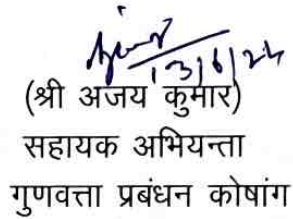 13/6/24
(श्री अजय कुमार)
सहायक अभियन्ता
गुणवत्ता प्रबंधन कोषांग